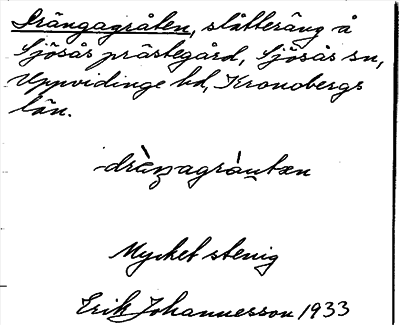 Drängagråten, slåtteräng å
Sjösås prästegård, Sjösås sn,
Uppvidinge hd, Kronobergs
län.
Mycket stenig
Erik Johannesson 1933